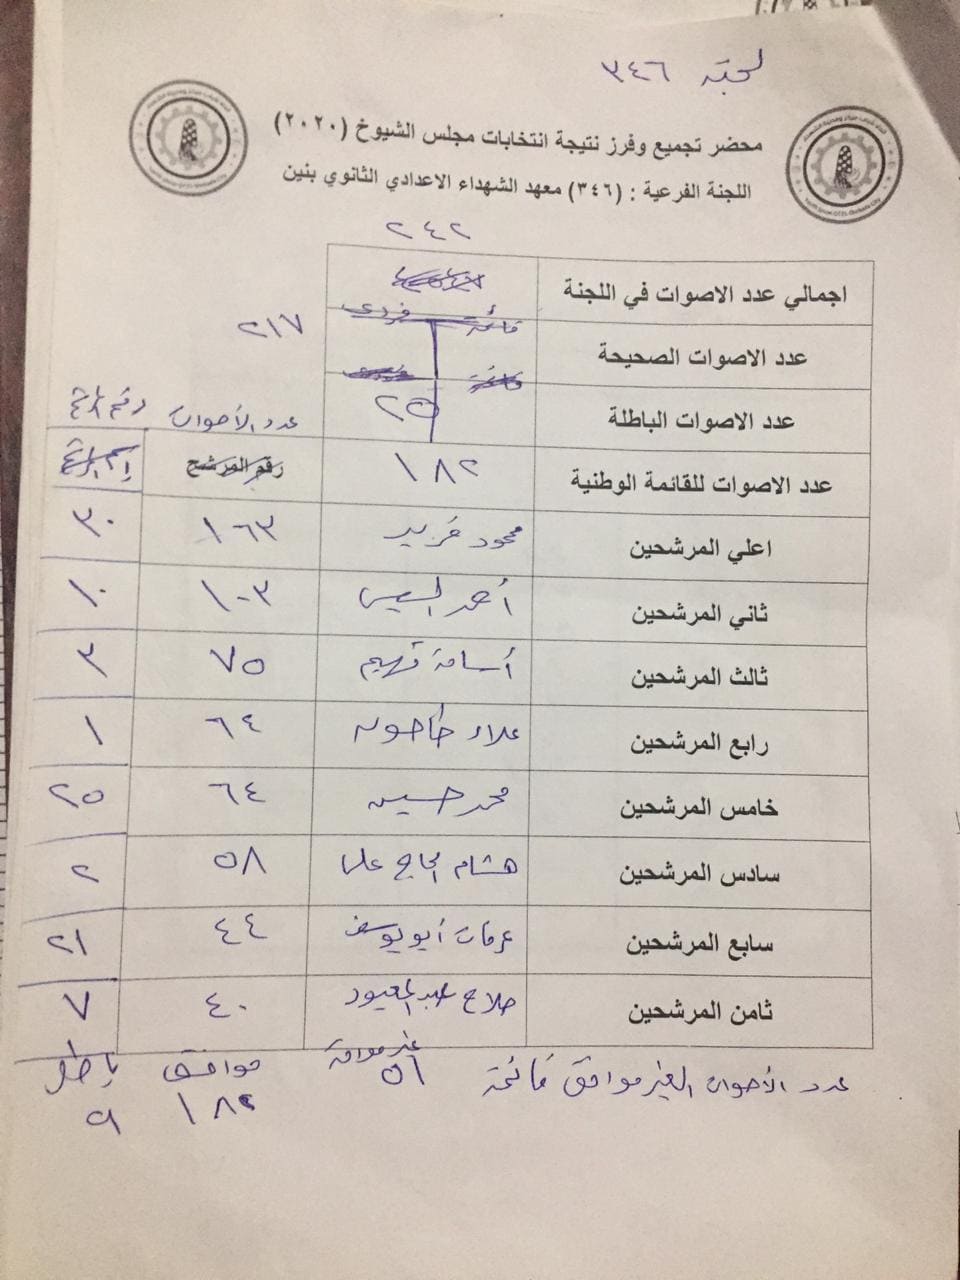 لجنة ٣٤٦
محضر تجميع وفرز نتيجة انتخابات مجلس الشيوخ (٢٠٢٠)
اللجنة الفرعية : (٣٤٦) معهد الشهداء الاعدادي الثانوي بنين
٢٤٢
اجمالي عدد الاصوات في اللجنة
قائمة فردى
عدد الاصوات الصحيحة ٢١٧
عدد الاصوات الباطلة ٢٥
عدد الأصوات رقم المرشح
عدد الاصوات للقائمة الوطنية ١٨٢ رقم المرشح
اعلي المرشحين محمود فريد ١٦٣ ٣٠
ثاني المرشحين أحمد السيسى ١٠٣ ١٠
ثالث المرشحين أسامة فهيم ٧٥ ٣
رابع المرشحين علاء طاحون ٦٤ ١
خامس المرشحين محمد حسين ٦٤ ٢٥
سادس المرشحين هشام الحاج على ٥٨ ٢
سابع المرشحين عرفات أبو يوسف ٤٤ ٢١
ثامن المرشحين صلاح عبد المعبود ٤٠ ٧
عدد الأصوات الغير موافق قائمة غير موافق موافق باطل
٥١ ١٨٢ ٩